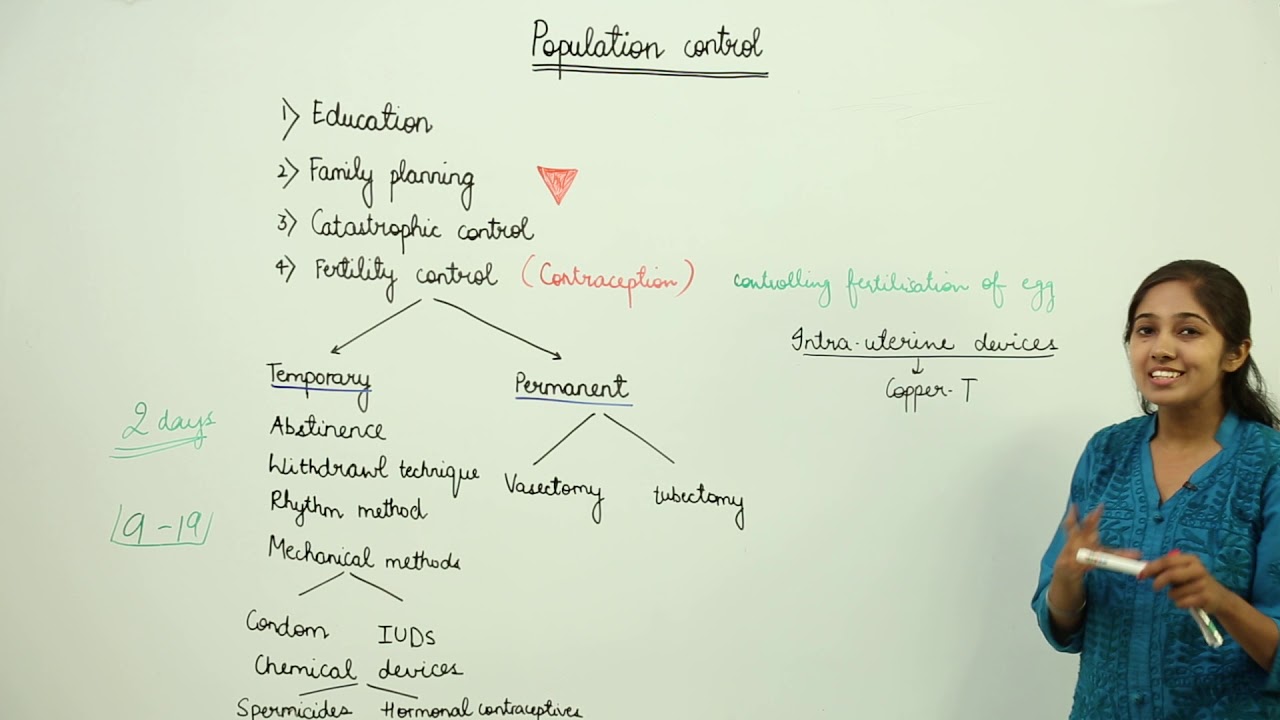 Population control
1) Education
2) Family planning
3) Catastrophic control
4) Fertility control (Contraception) controlling fertilisation of egg
Intra-uterine devices
Copper-T
Temporary Permanent
2 days
Abstinence
Withdrawl technique
Vasectomy tubectomy
Rhythm method
9-19
Mechanical methods
Condom IUDs
Chemical devices
Spermicides Hormonal contraceptives